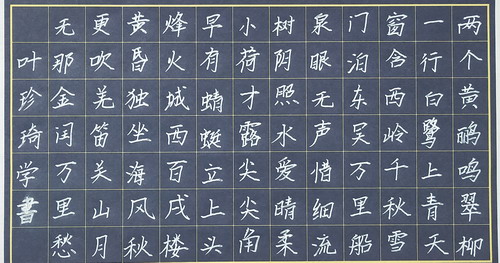 两个黄鹂鸣翠柳
一行白鹭上青天
窗含西岭千秋雪
门泊东吴万里船
泉眼无声惜细流
树阴照水爱晴柔
小荷才露尖尖角
早有蜻蜓立上头
烽火城西百戌楼
黄昏独坐海风秋
更吹羌笛关山月
无那金闰万里愁
叶珍琦学書